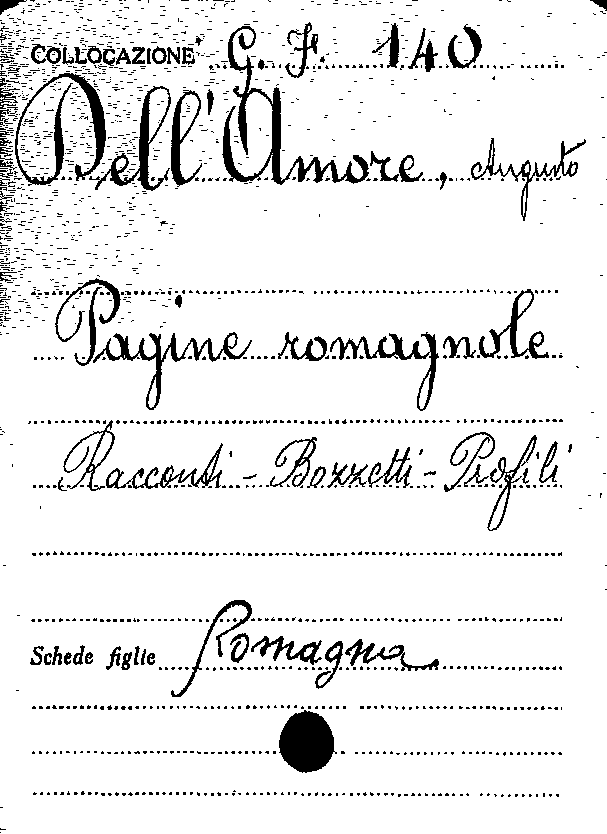 COLLOCAZIONE G. F. 140
Dell'Amore, Augusto
Pagine romagnole
Racconti - Bozzetti - Profili
Schede figlie Romagna